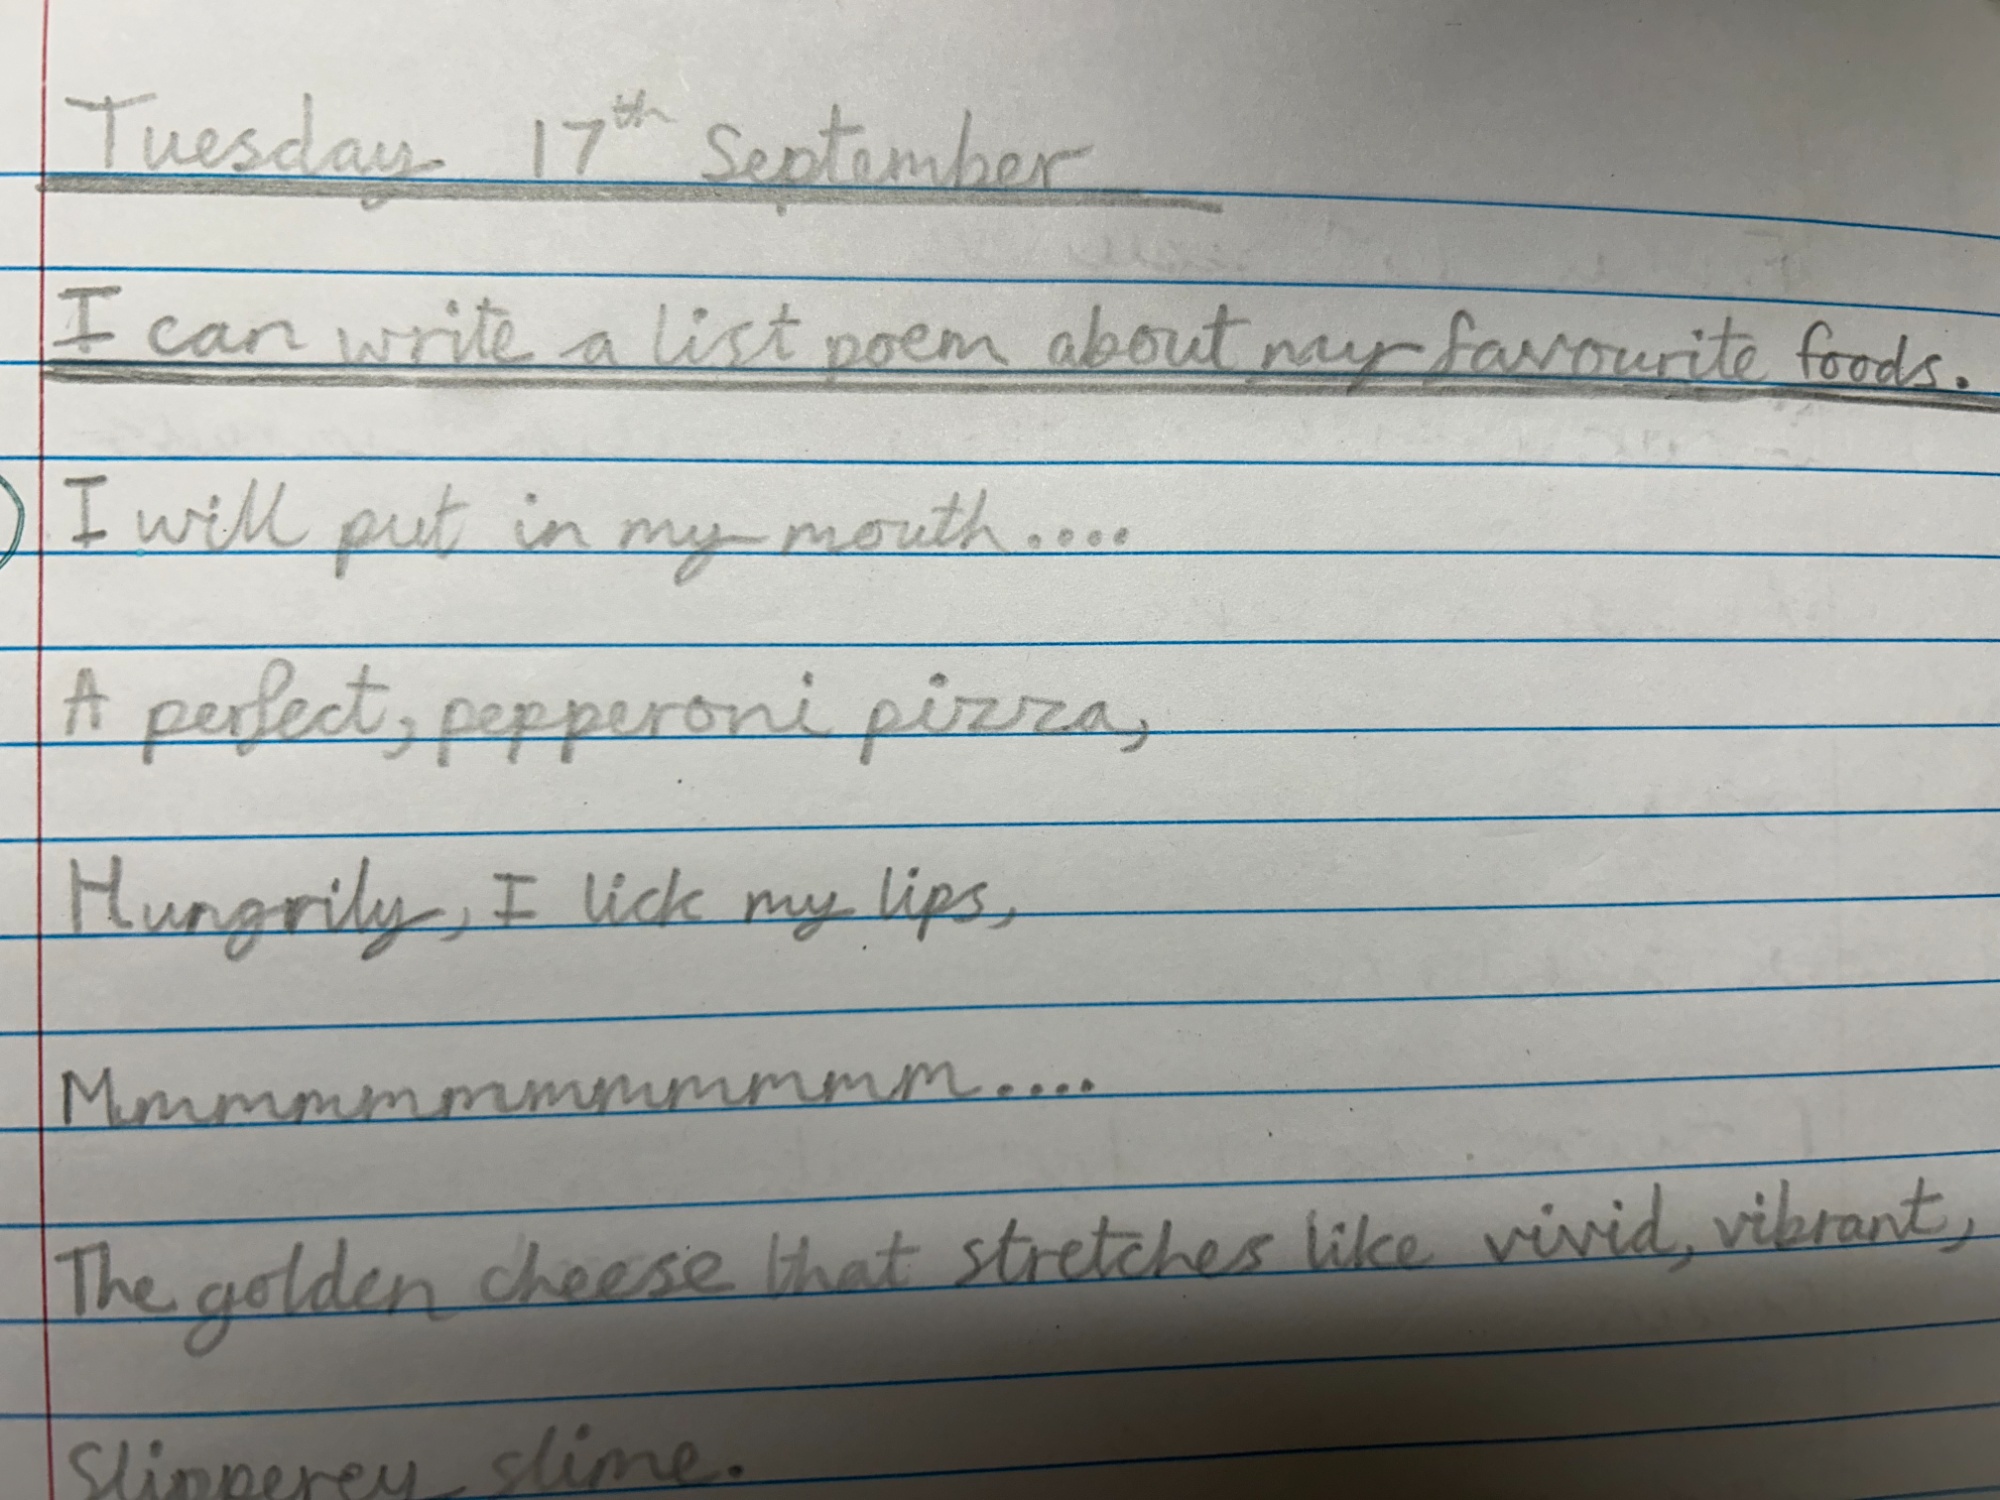 Tuesday 17th September
I can write a list poem about my favourite foods.
I will put in my mouth....
A perfect, pepperoni pizza,
Hungrily, I lick my lips,
Mmmmmmmmmmmm....
The golden cheese that stretches like vivid, vibrant,
Slipperey slime.